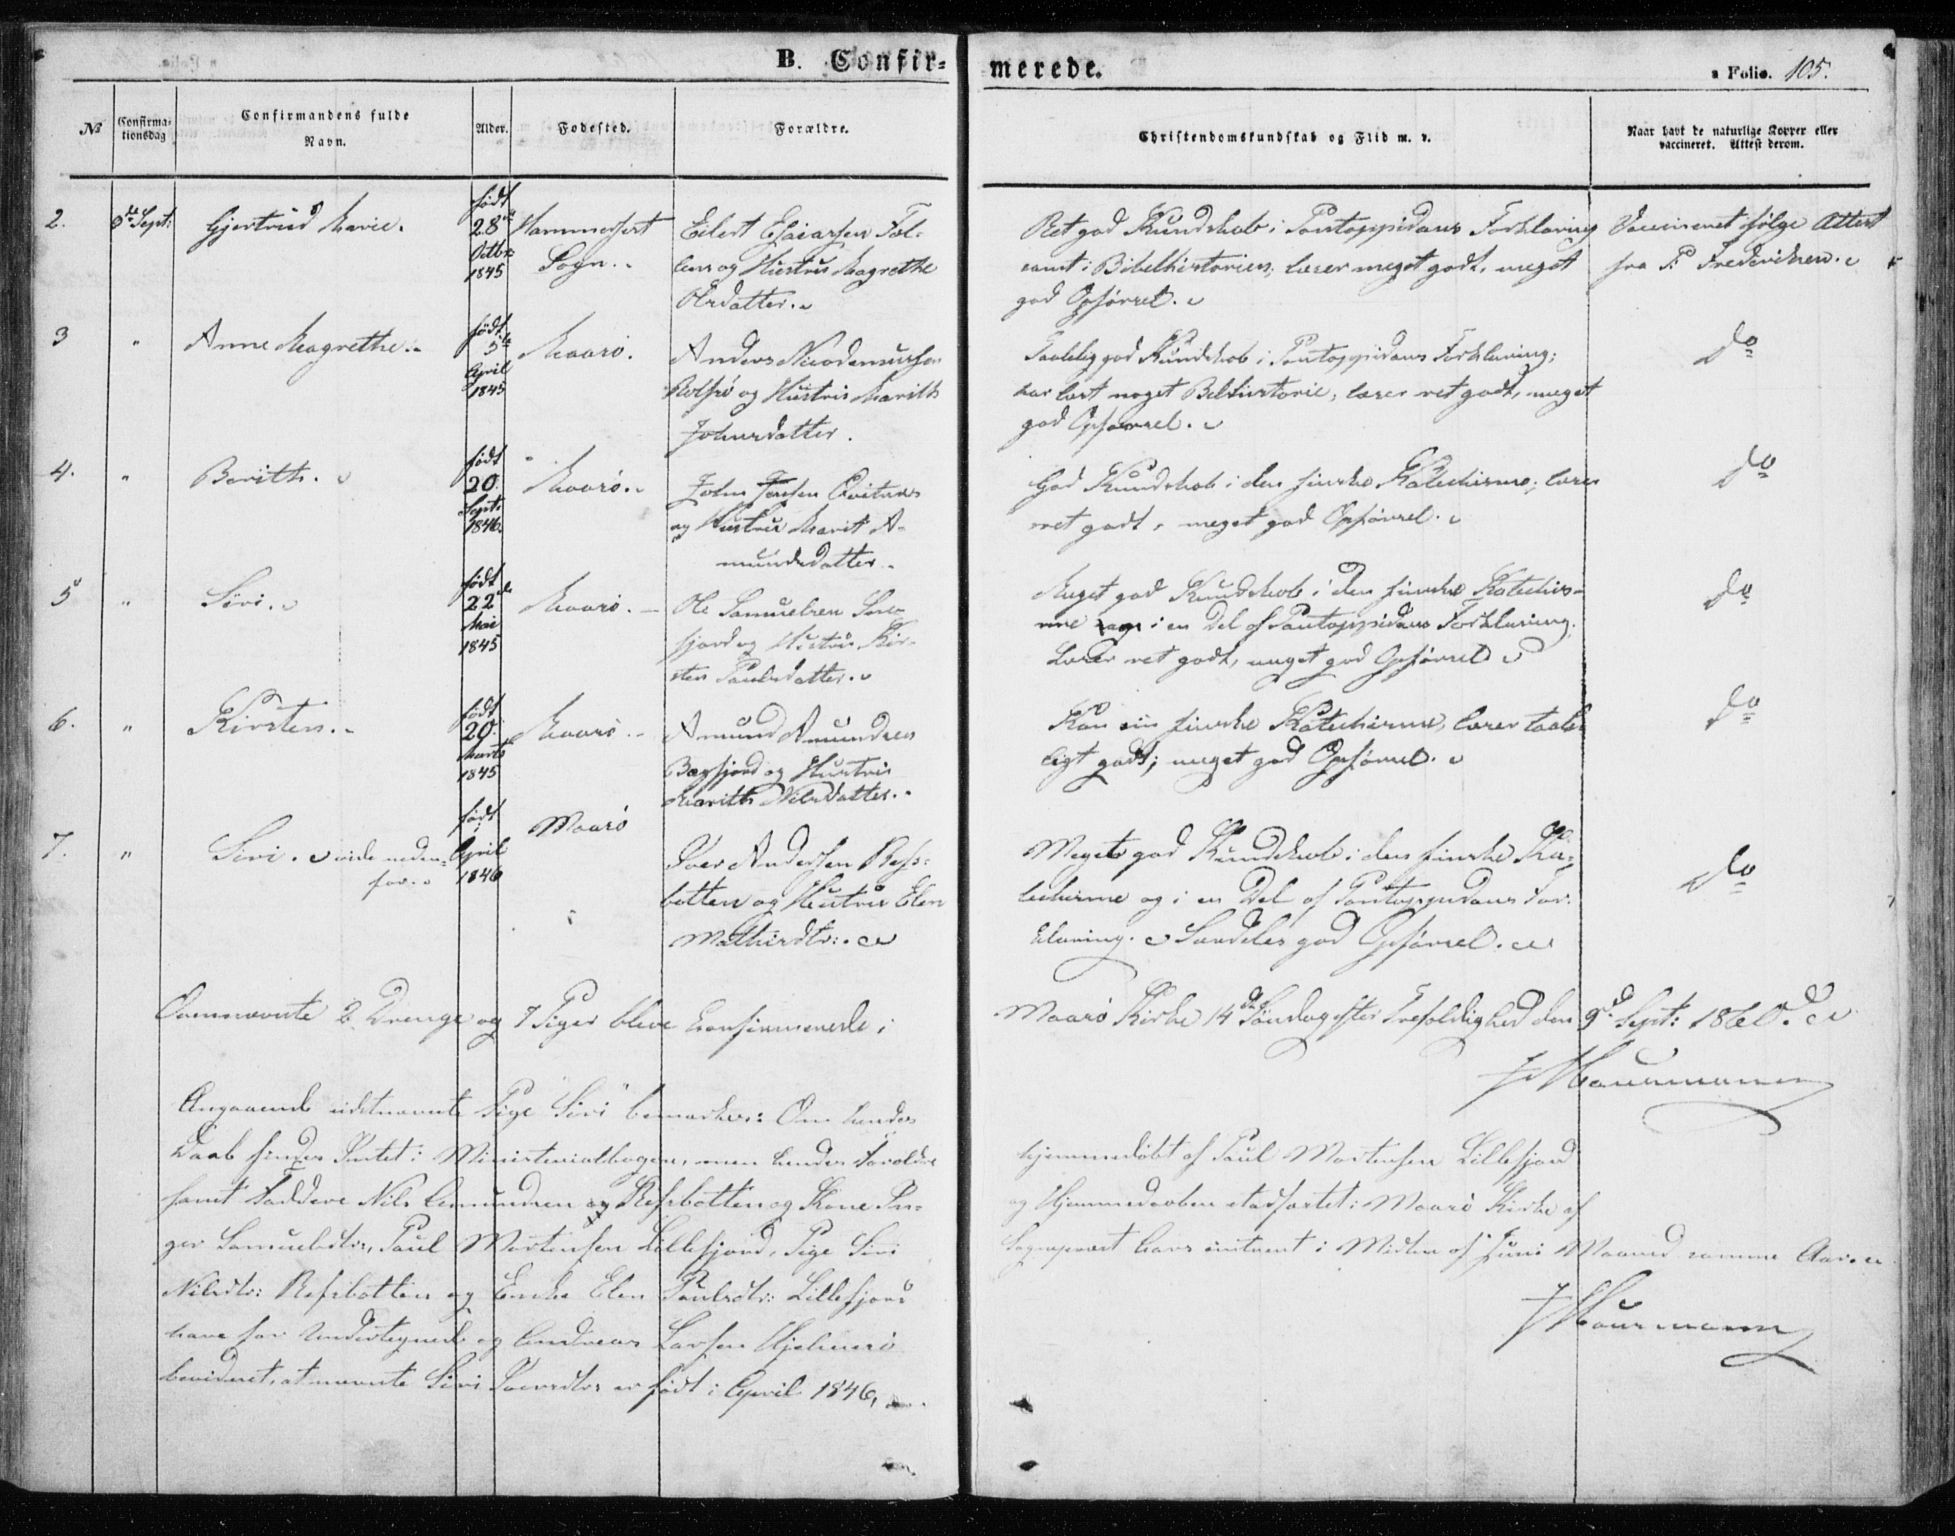 B. Confirmerede.
a Folio. 105.
№
Confirmationsdag
Confirmandens fulde Navn.
Alder.
Fødested.
Forældre.
Christendomskundskab og Flid m. v.
Naar havt de naturlige Kopper eller vaccineret. Attest derom.
2.
9de Sept:
Gjertrud Marie.
født 28de Octbr: 1845
Hammerfest Sogn.
Eilert Esaiassen
og Hustru Magrethe
Olsdatter.
Ret god Kundskab i Pontoppidans Forklaring
samt i Bibelhistorien; læser meget godt, meget
god Opførsel.
Vaccineret ifølge Attest
fra P. Fredriksen.
3
"
Anne Magrethe.
født 5te April 1845
Maasø.
Anders Nicodemussen
og Hustru Marith
Johnsdatter.
Taalelig god Kundskab i Pontoppidans Forklaring;
har læst noget Bibelhistorie, læser ret godt, meget
god Opførsel.
do
4.
"
Berith.
født 20. Sept: 1846.
Maasø.
John Jensen
og Hustru Marit A-
mundsdatter.
God Kundskab i den finske Katechisme; læser
ret godt, meget god Opførsel.
do
5
"
Siri.
født 22de Mai 1845
Maasø.
Ole Samuelsen
fjord og Hustru Kir-
sten Paulsdatter.
Meget god Kundskab i den finske Katechis-
me og i en Del af Pontoppidans Forklaring.
Læser ret godt, meget god Opførsel
do
6.
"
Kirsten.
født 20. Marts 1845
Maasø.
Amund Amundsen
og Hustru
Marith Nilsdatter.
Kan sin finske Katechisme, læser taale-
ligt godt; meget god Opførsel.
do
7.
"
Siri. vide neden-
for.
født i April 1846
Maasø
Iver Andersen Refs-
botten og Hustru Elen
Mathisdtr:
Meget god Kundskab i den finske Ka-
techisme og i en Del af Pontoppidans For-
klaring. Særdeles god Opførsel.
do
Ovennævnte 2 Drenge og 7 Piger bleve confirmerede i Maasø Kirke 14de Søndag efter Trefoldighed den 9de Sept: 1860.
J Maurmann
Angaaende sidstnævnte Pige "Siri" bemærkes: Om hendes
Daab findes Intet i Ministerialbogen, men hendes Forældre
samt Faddere Nils Amundsen og Refsbotten og Kone In-
ger Samuelsdtr:, Paul Mortensen Lillefjord, Pige Siri
Nilsdtr: Refsbotten og Enke Elen Paulsdtr: Lillefjord
have for Undertegnede og Andreas Larsen Hjelmsø
bevidnet, at nævnte Siri Iversdtr er født i April 1846,
hjemmedøbt af Paul Mortensen Lillefjord
og Hjemmedaaben stadfæstet i Maasø Kirke af
Sognepræst i Midten af Juni Maaned samme Aar.
J Maurmann